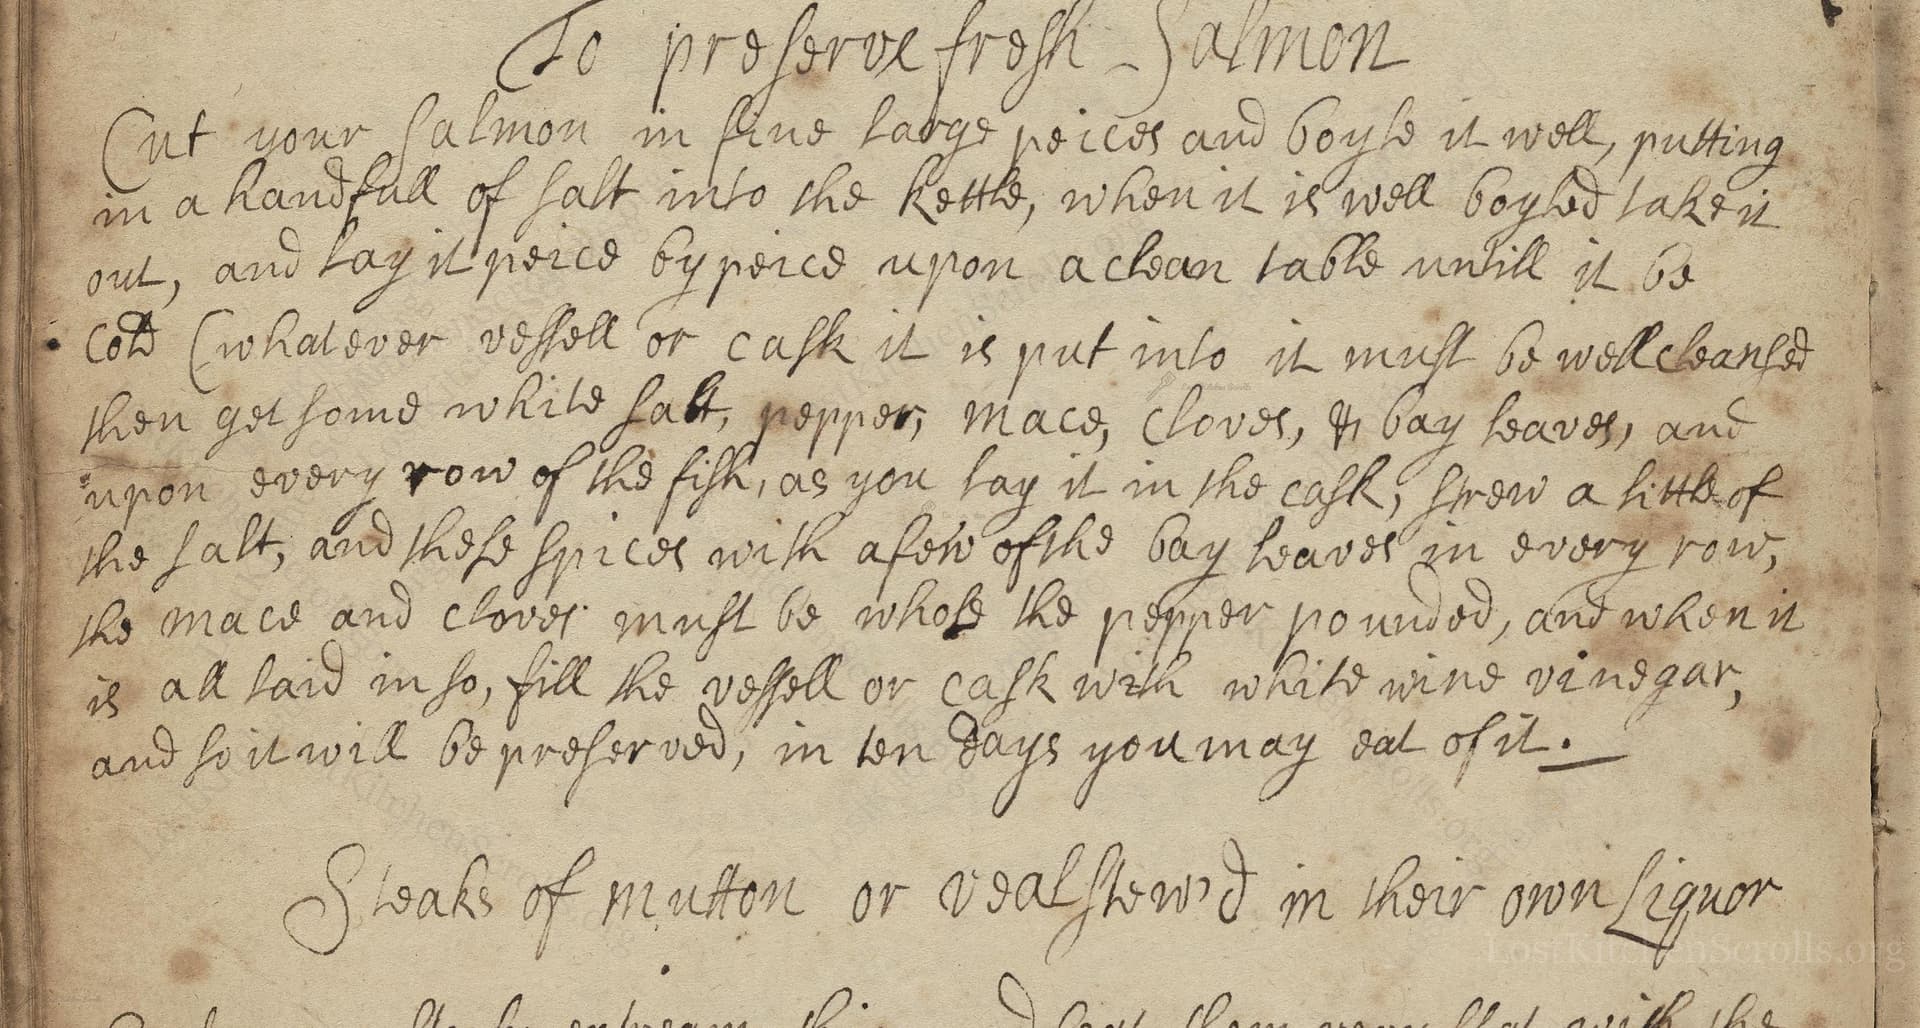 To preserve fresh Salmon
Cut your Salmon in fine large peices and boyle it well, putting
in a handfull of salt into the kettle, when it is well boyled take it
out, and lay it peice by peice upon a clean table untill it be
cold (whatever vessell or cask it is put into it must be well cleansed
then get some white salt, pepper, mace, cloves, & bay leaves, and
upon every row of the fish, as you lay it in the cask, strew a little of
the salt, and these spices with a few of the bay leaves in every row,
the mace and cloves must be whole the pepper pounded, and when it
is all laid in so, fill the vessell or cask with white wine vinegar,
and so it will be preserved, in ten days you may eat of it.
Steaks of mutton or veal stew'd in their own Liquor
LostKitchenScrolls.org
them very flat with the